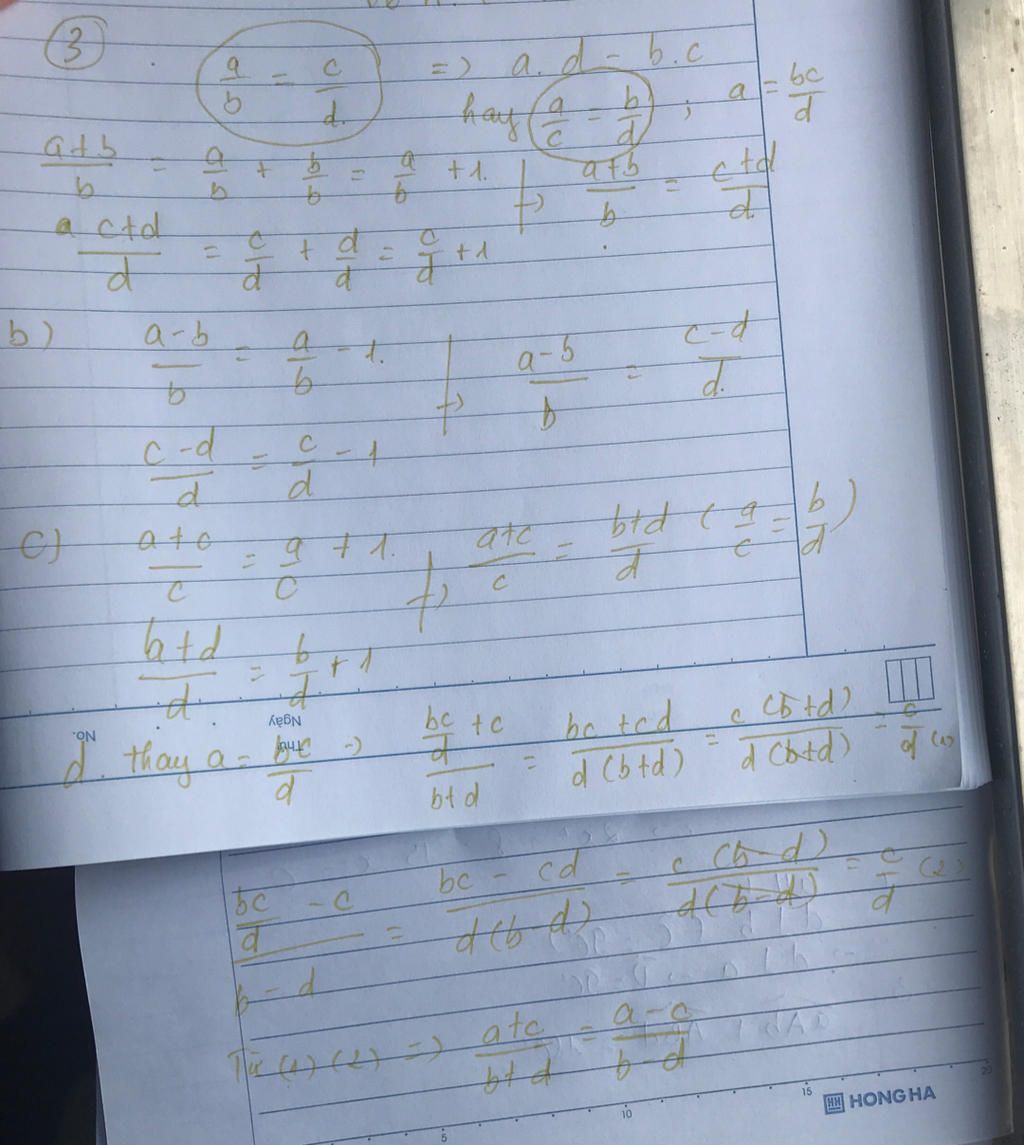 ③ a/b = c/d. => a.d = b.c
hay a/c = b/d ; a = bc/d
(a+b)/b = a/b + b/b = a/b + 1. | → (a+b)/b = (c+d)/d
(c+d)/d = c/d + d/d = c/d + 1
b) (a-b)/b = a/b - 1. | → (a-b)/b = (c-d)/d.
(c-d)/d = c/d - 1
c) (a+c)/c = a/c + 1. | → (a+c)/c = (b+d)/d (a/c = b/d)
(b+d)/d = b/d + 1
No. Thứ Ngày
d. thay a = bc/d → (bc/d + c)/(b+d) = (bc+cd)/(d(b+d)) = (c(b+d))/(d(b+d)) = c/d (1)
(bc/d - c)/(b-d) = (bc-cd)/(d(b-d)) = (c(b-d))/(d(b-d)) = c/d (2)
Từ (1) (2) => (a+c)/(b+d) = (a-c)/(b-d)
5 10 15 20
HH HONG HA